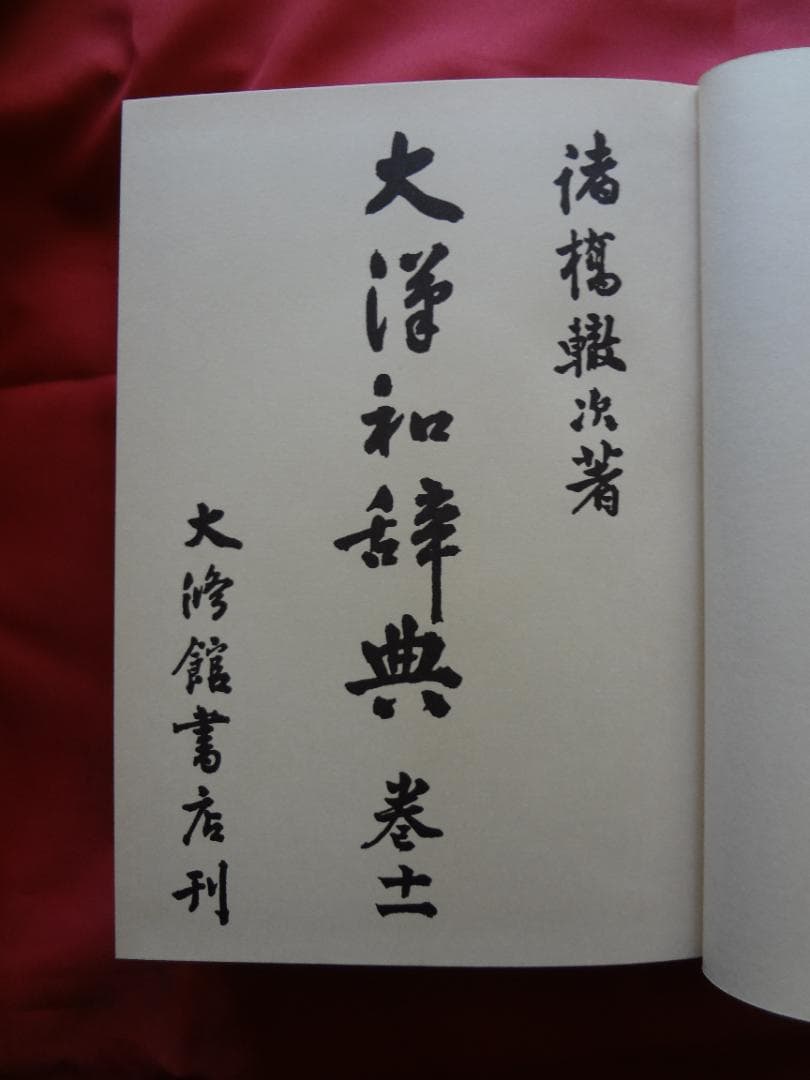 諸橋轍次著
大漢和辞典 巻十一
大修館書店刊